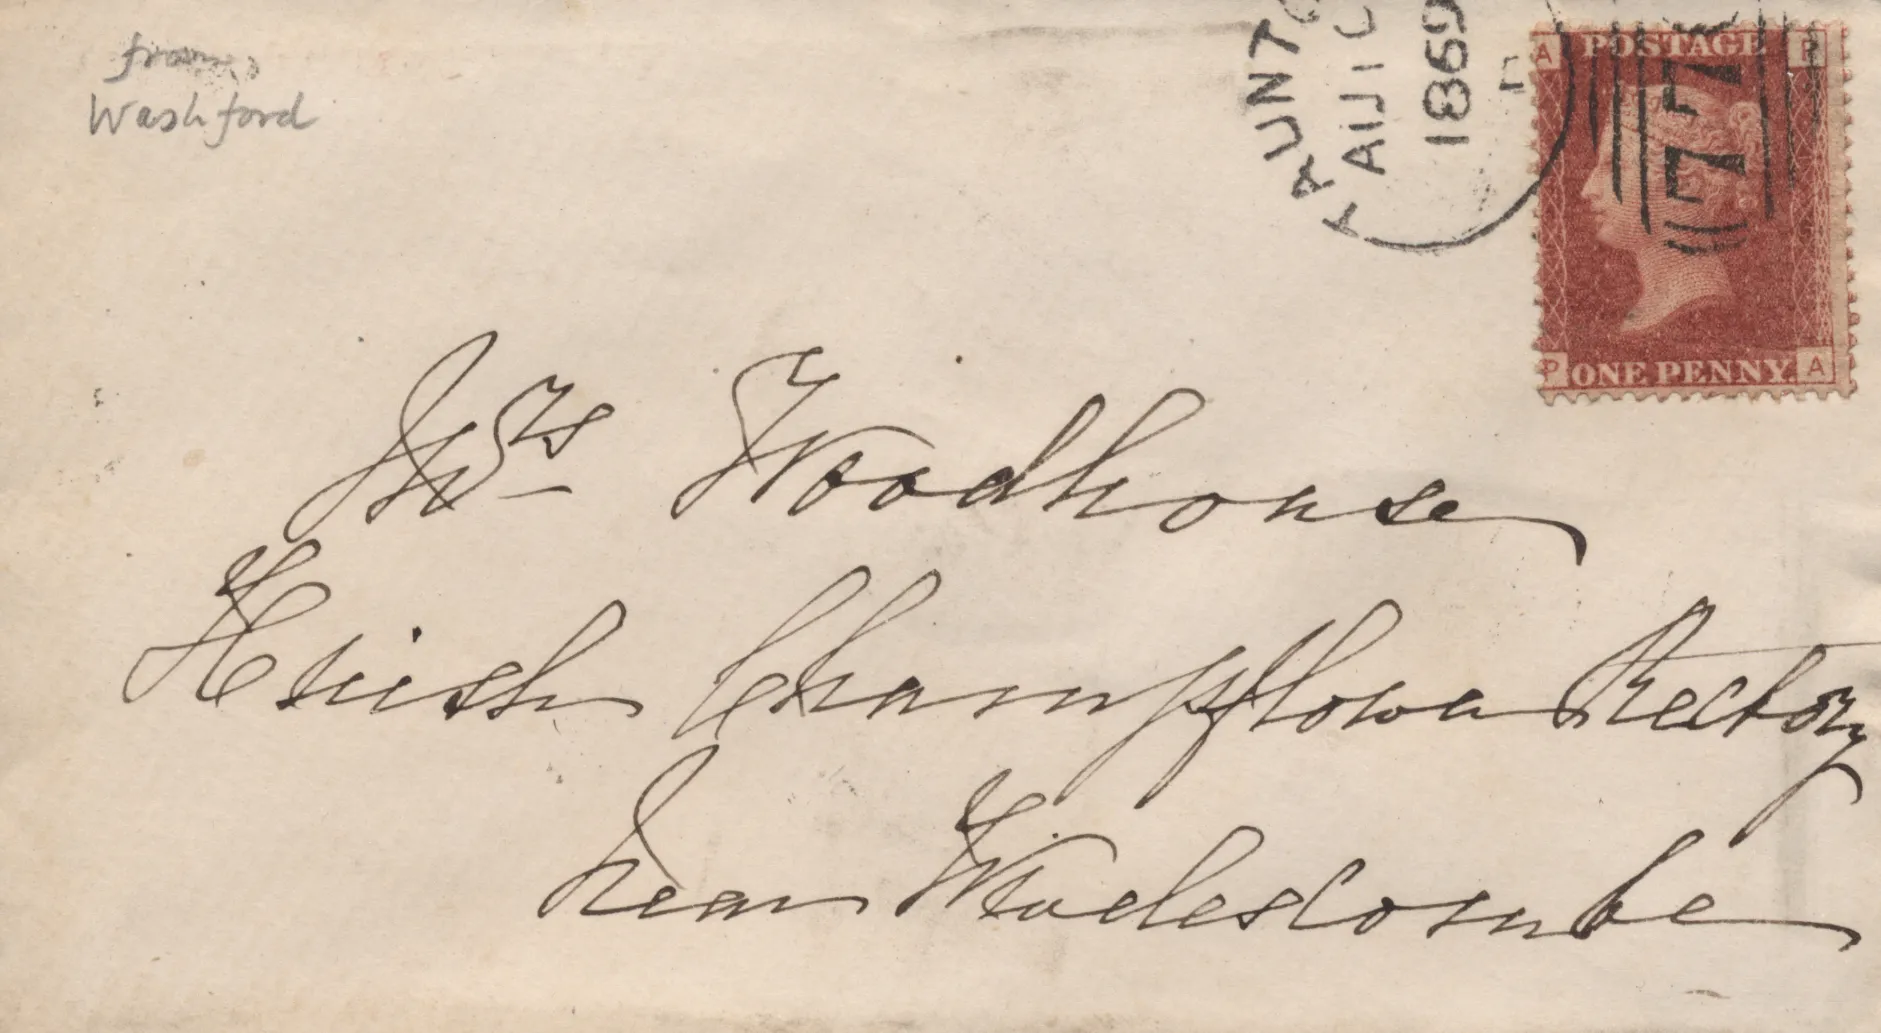 from
Washford
TAUNTO
AU 10
1869
A POSTAGE P
77
P ONE PENNY A
Mrs Woodhouse
Huish Champflower Rectory
near Wiveliscombe